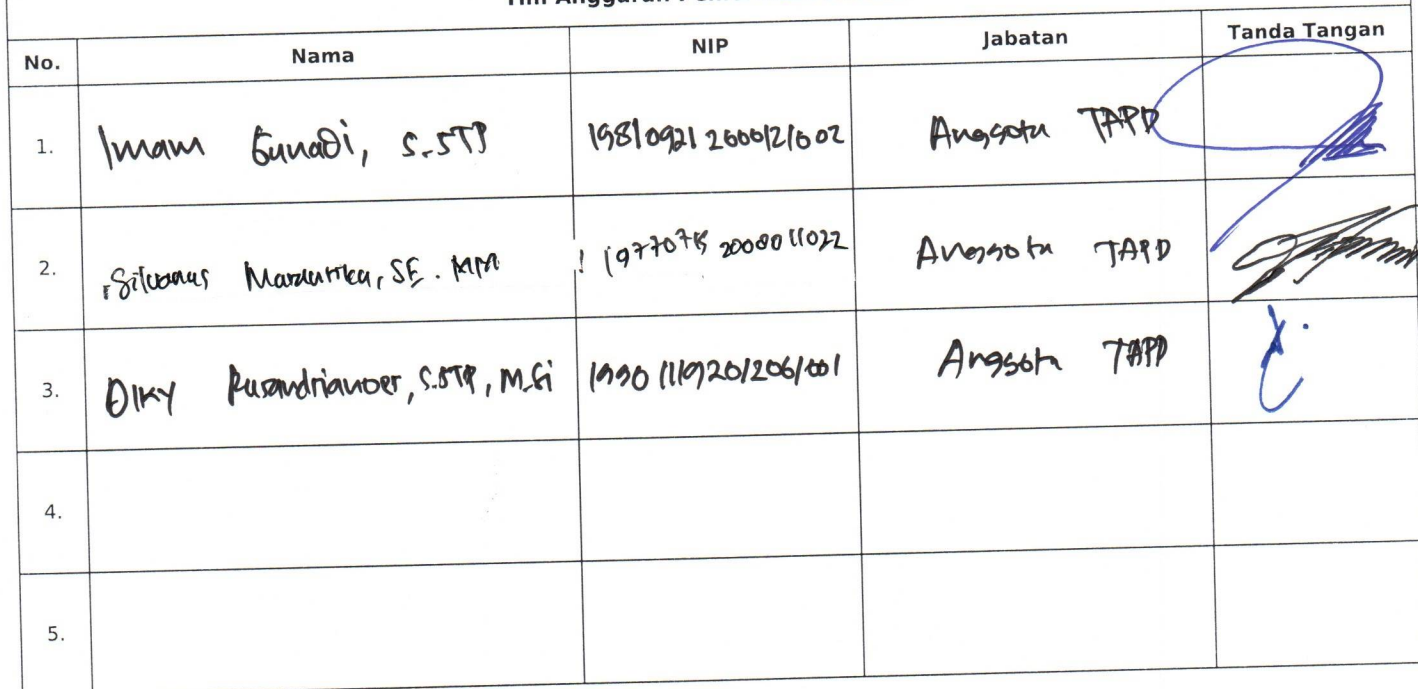 Tim Anggaran
No. Nama NIP Jabatan Tanda Tangan
1. Imam Gunadi, S.STP 19810921 200012 1 002 Anggota TAPD
2. SE. MM 19770715 200801 1022 Anggota TAPD
3. DIKY S.STP, M.Si 19901119 201206 1 001 Anggota TAPD
4.
5.